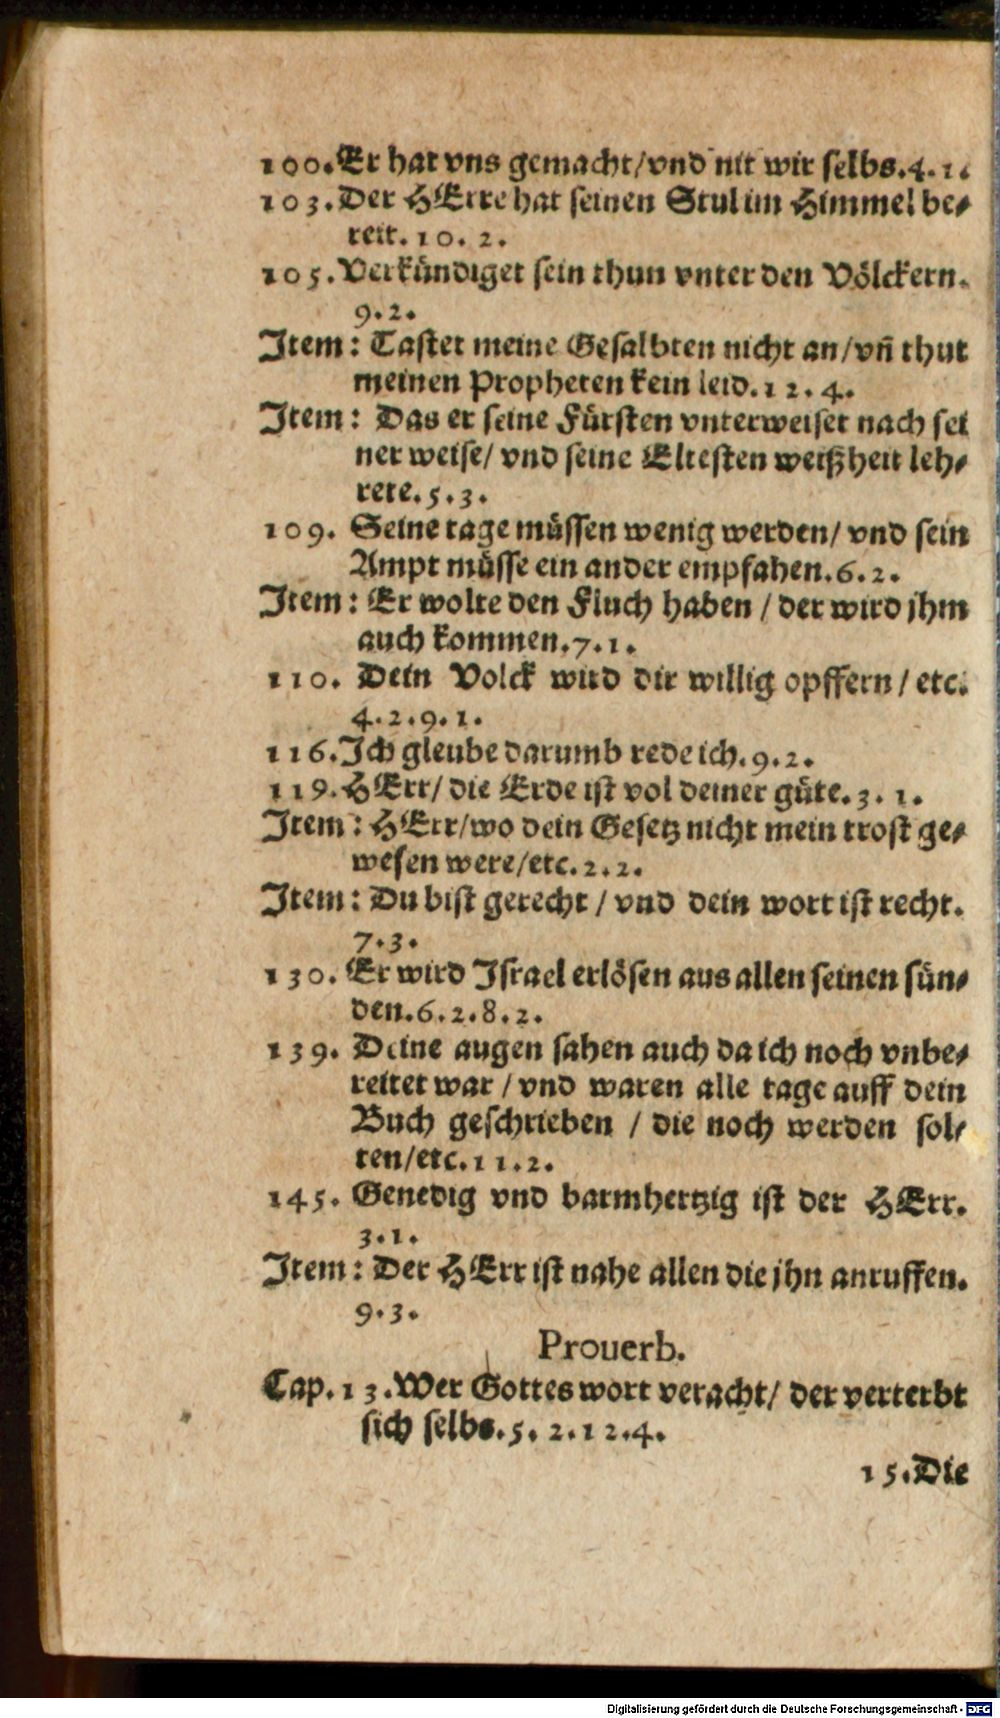 100. Er hat vns gemacht/vnd nit wir selbs. 4. 1.
103. Der HErre hat seinen Stul im Himmel be-
reit. 10. 2.
105. Verkündiget sein thun vnter den Völckern.
9. 2.
Item: Tastet meine Gesalbten nicht an/vñ thut
meinen Propheten kein leid. 12. 4.
Item: Das er seine Fürsten vnterweiset nach sei
ner weise/ vnd seine Eltesten weißheit leh-
rete. 5. 3.
109. Seine tage müssen wenig werden/ vnd sein
Ampt müsse ein ander empfahen. 6. 2.
Item: Er wolte den Fluch haben / der wird jhm
auch kommen. 7. 1.
110. Dein Volck wird dir willig opffern / etc.
4. 2. 9. 1.
116. Ich gleube darumb rede ich. 9. 2.
119. HErr/ die Erde ist vol deiner güte. 3. 1.
Item: HErr/wo dein Gesetz nicht mein trost ge-
wesen were/etc. 2. 2.
Item: Du bist gerecht / vnd dein wort ist recht.
7. 3.
130. Er wird Israel erlösen aus allen seinen sün-
den. 6. 2. 8. 2.
139. Deine augen sahen auch da ich noch vnbe-
reitet war / vnd waren alle tage auff dein
Buch geschrieben / die noch werden sol-
ten/etc. 11. 2.
145. Genedig vnd barmhertzig ist der HErr.
3. 1.
Item: Der HErr ist nahe allen die jhn anruffen.
9. 3.
Prouerb.
Cap. 13. Wer Gottes wort veracht/ der verterbt
sich selbs. 5. 2. 12. 4.
15. Die
Digitalisierung gefördert durch die Deutsche Forschungsgemeinschaft - DFG